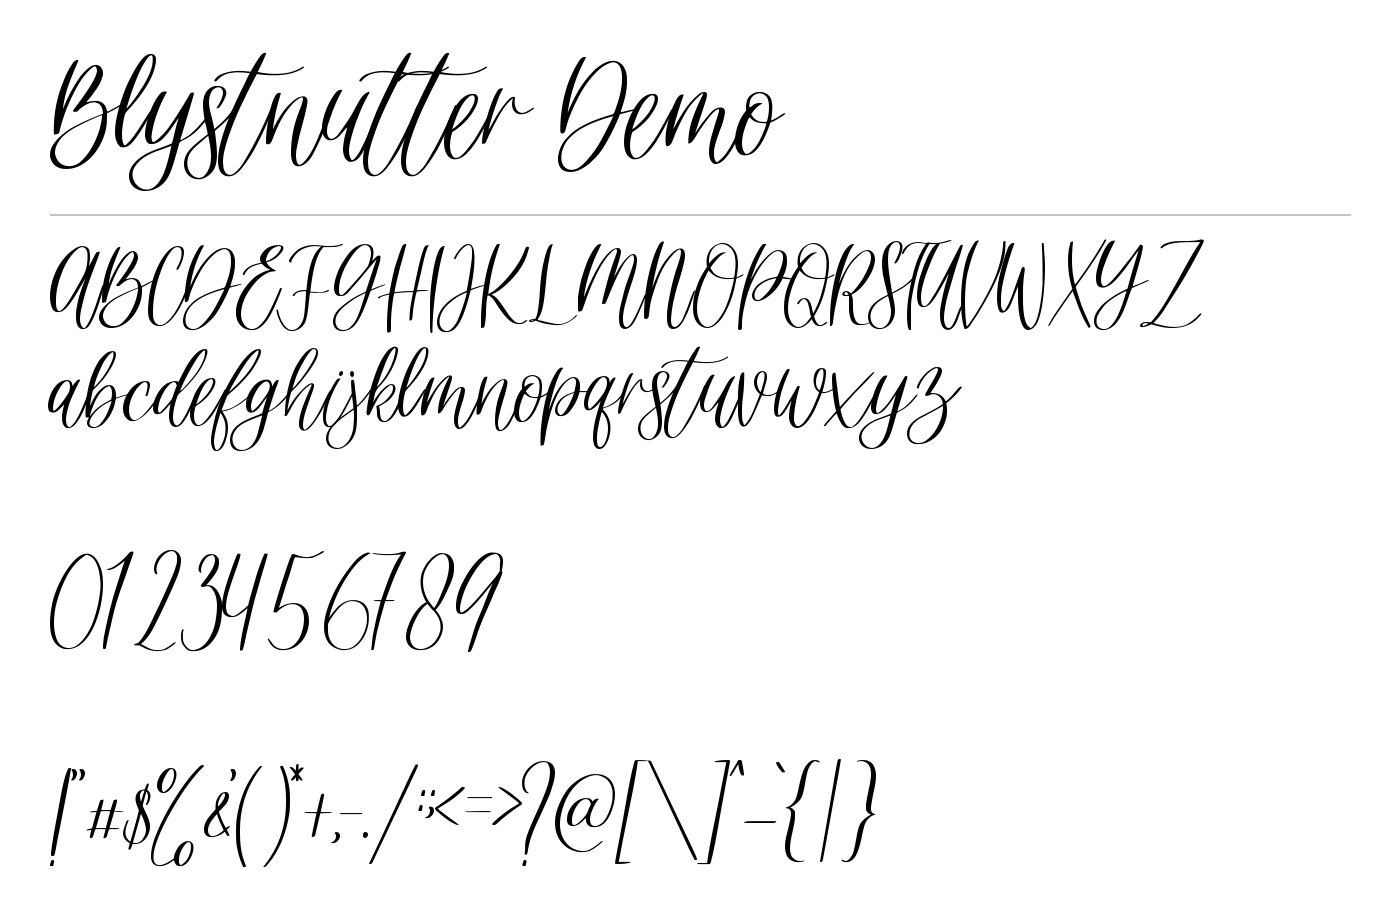 Blystnutter Demo
ABCDEFGHIJKLMNOPQRSTUVWXYZ
abcdefghijklmnopqrstuvwxyz
0123456789
!"#$%&'()*+,-./:;<=>?@[\]^_`{|}